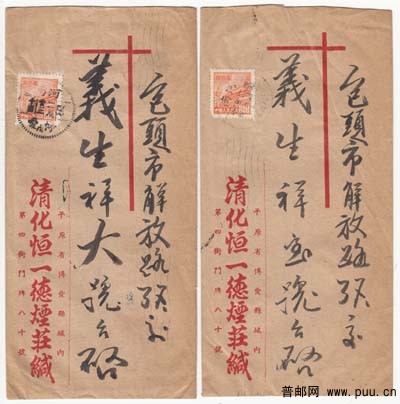 包頭市解放路
義生祥大號台啓
平原省博愛縣城内
清化恒一德煙莊緘
第四街門牌八十號
包頭市解放路
義生祥寶號台啓
平原省博愛縣城内
清化恒一德煙莊緘
第四街門牌八十號
普邮网 www.puu.cn